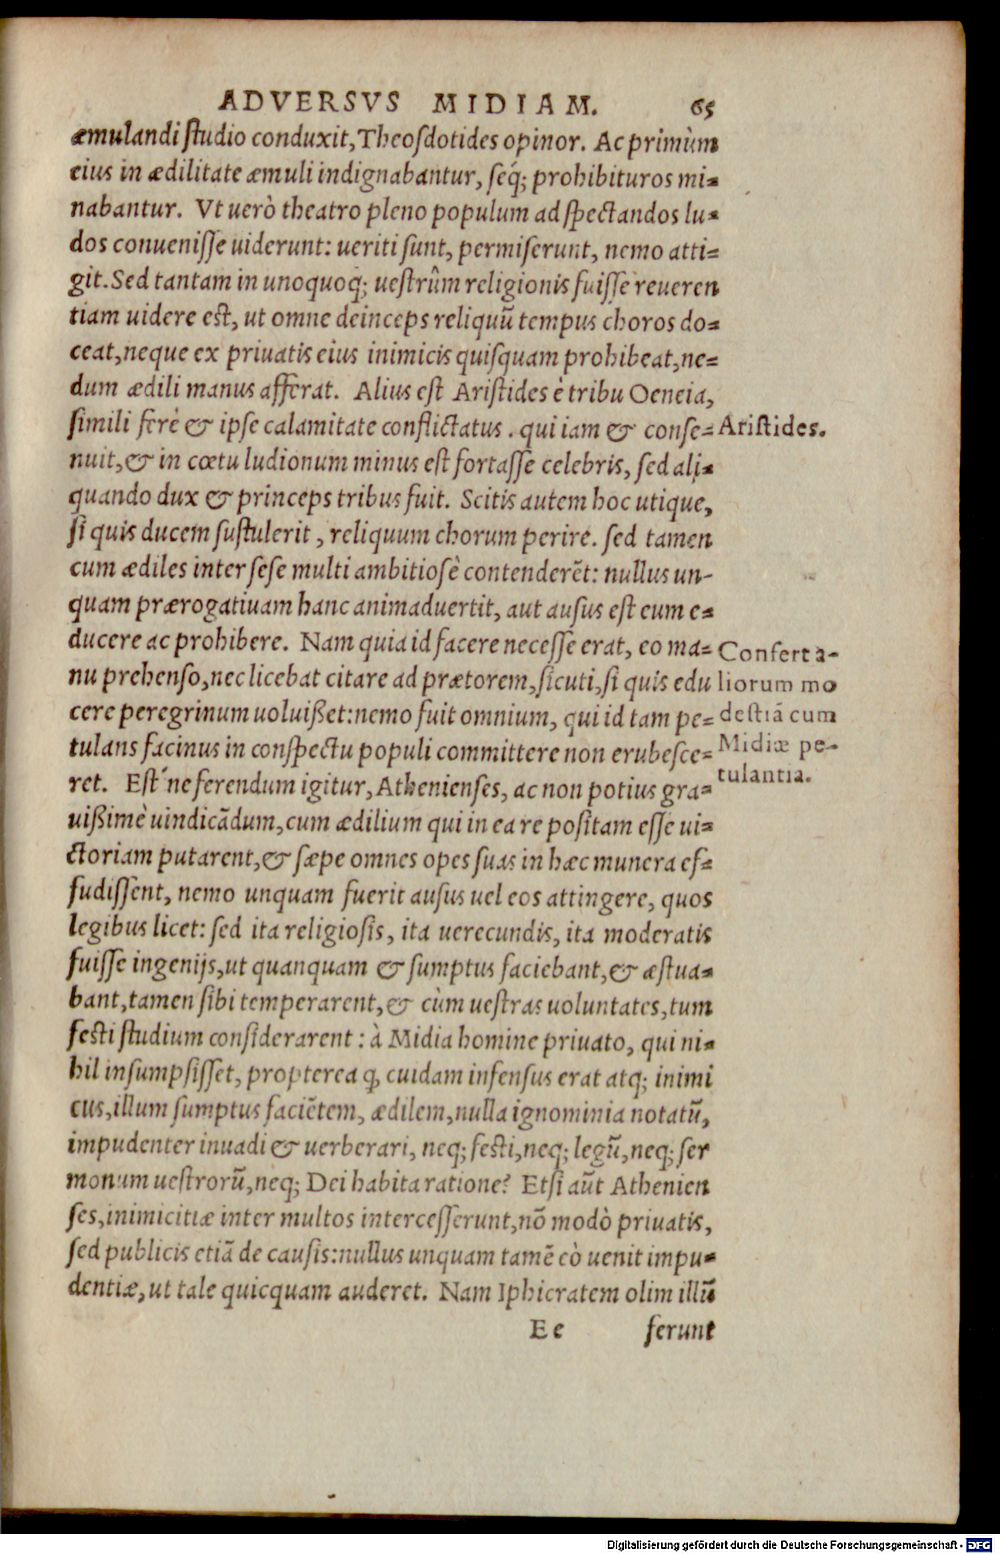 ADVERSVS MIDIAM. 65
æmulandi studio conduxit, Theosdotides opinor. Ac primùm
eius in ædilitate æmuli indignabantur, seq́; prohibituros mi-
nabantur. Vt uerò theatro pleno populum ad spectandos lu-
dos conuenisse uiderunt: ueriti sunt, permiserunt, nemo atti-
git. Sed tantam in unoquoq; uestrûm religionis fuisse reueren
tiam uidere est, ut omne deinceps reliquũ tempus choros do-
ceat, neque ex priuatis eius inimicis quisquam prohibeat, ne-
dum ædili manus afferat. Alius est Aristides è tribu Oeneia,
simili ferè & ipse calamitate conflictatus. qui iam & conse-
Aristides.
nuit, & in cœtu ludionum minus est fortasse celebris, sed ali-
quando dux & princeps tribus fuit. Scitis autem hoc utique,
si quis ducem sustulerit, reliquum chorum perire. sed tamen
cum ædiles inter sese multi ambitiosè contenderẽt: nullus un-
quam prærogatiuam hanc animaduertit, aut ausus est eum e-
ducere ac prohibere. Nam quia id facere necesse erat, eo ma-
nu prehenso, nec licebat citare ad prætorem, sicuti, si quis edu
cere peregrinum uolußet: nemo fuit omnium, qui id tam pe-
tulans facinus in conspectu populi committere non erubesce-
Confert a-
liorum mo
destiã cum
Midiæ pe-
tulantia.
ret. Est'ne ferendum igitur, Athenienses, ac non potius gra-
uißimè uindicãdum, cum ædilium qui in ea re positam esse ui-
ctoriam putarent, & sæpe omnes opes suas in hæc munera ef-
fudissent, nemo unquam fuerit ausus uel eos attingere, quos
legibus licet: sed ita religiosis, ita uerecundis, ita moderatis
fuisse ingenijs, ut quanquam & sumptus faciebant, & æstua-
bant, tamen sibi temperarent, & cùm uestras uoluntates, tum
festi studium considerarent: à Midia homine priuato, qui ni-
hil insumpsisset, propterea ꝙ cuidam infensus erat atq; inimi
cus, illum sumptus faciẽtem, ædilem, nulla ignominia notatũ,
impudenter inuadi & uerberari, neq; festi, neq; legũ, neq; ser
monum uestrorũ, neq; Dei habita ratione? Etsi aũt Athenien
ses, inimicitiæ inter multos intercesserunt, nõ modò priuatis,
sed publicis etiã de causis: nullus unquam tamẽ eò uenit impu-
dentiæ, ut tale quicquam auderet. Nam Iphicratem olim illũ
Ee ferunt
Digitalisierung gefördert durch die Deutsche Forschungsgemeinschaft - DFG